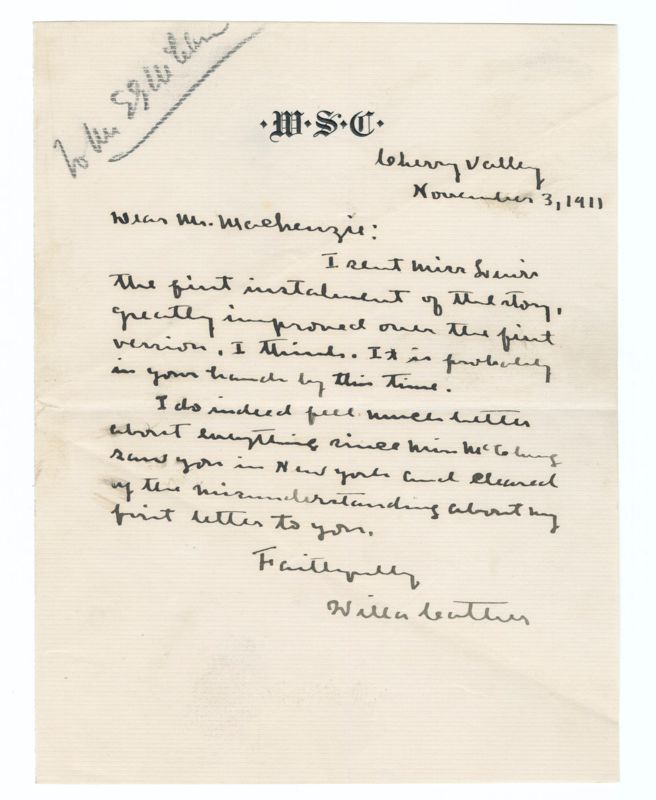 To Mr
·W·S·C·
Cherry Valley
November 3, 1911
Dear Mr. Mackenzie:
I sent Miss Lewis
the first instalment of the story,
greatly improved over the first
version, I think. It is probably
in your hands by this time.
I do indeed feel much better
about everything since Miss McClung
saw you in New York and cleared
up the misunderstanding about my
first letter to you.
Faithfully
Willa Cather